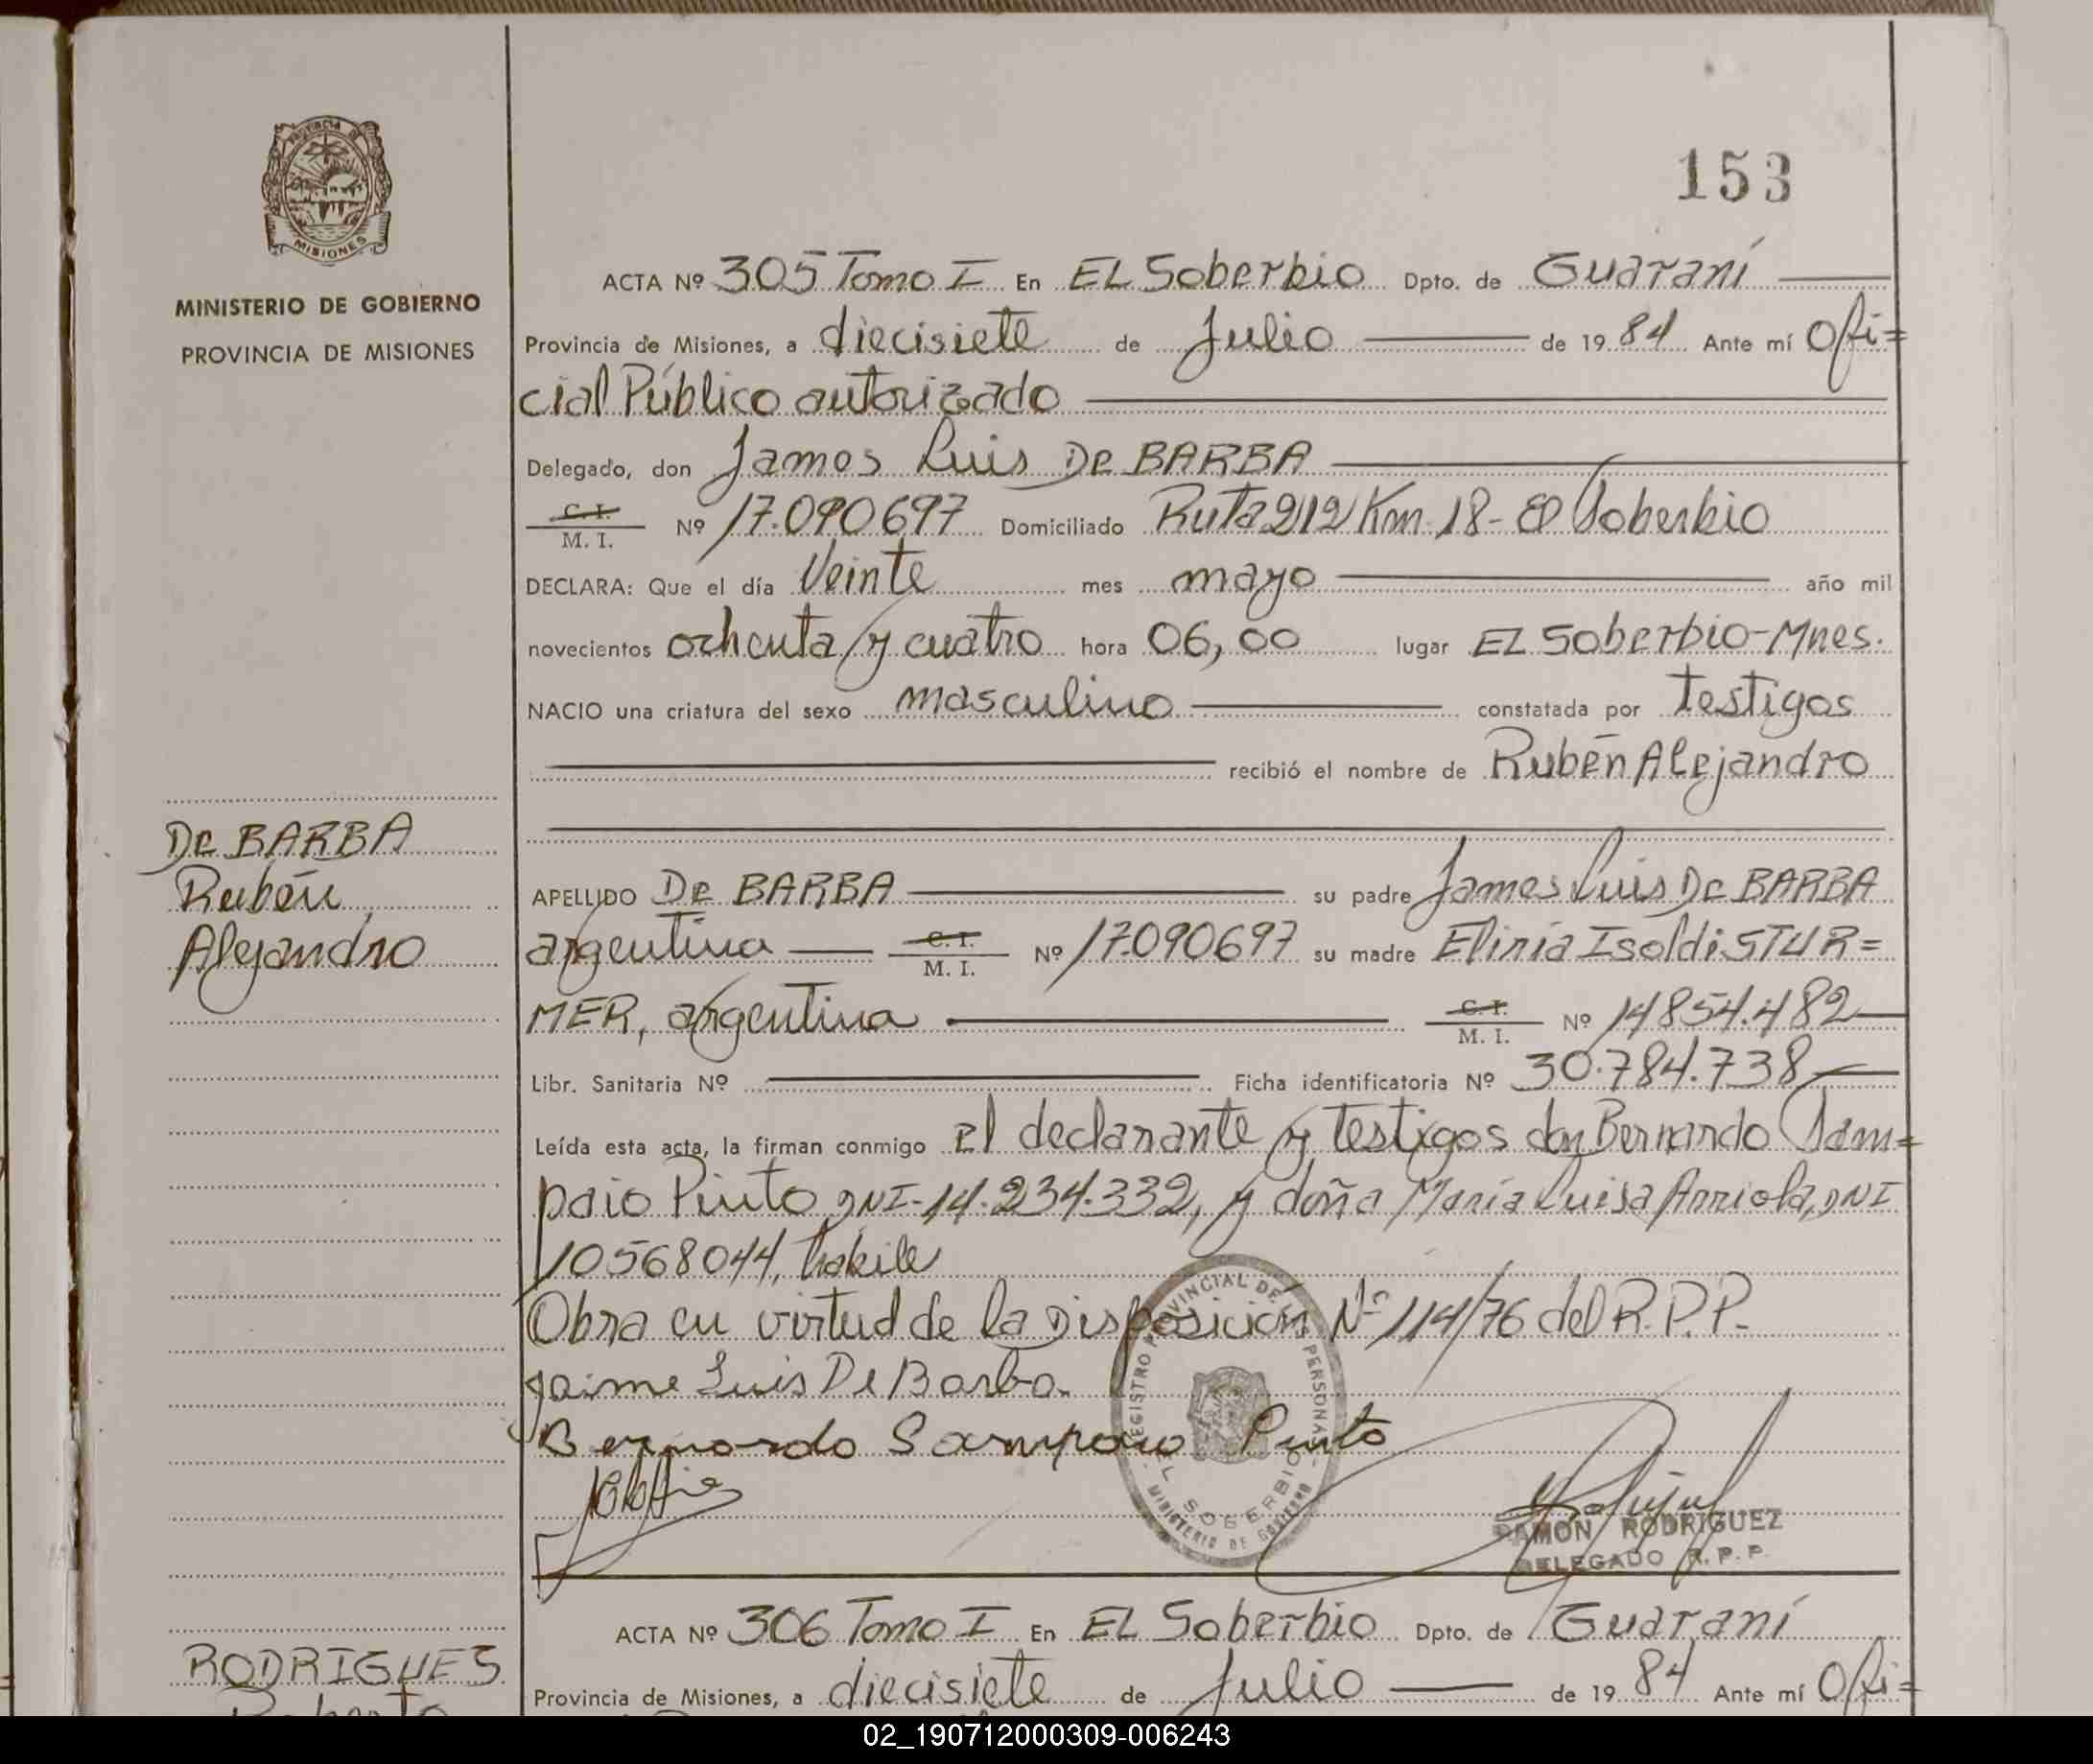 153
PROVINCIA DE
MISIONES
MINISTERIO DE GOBIERNO
PROVINCIA DE MISIONES
ACTA Nº 305 Tomo I En EL Soberbio Dpto. de Guaraní
Provincia de Misiones, a diecisiete de Julio de 19 84 Ante mí Ofi=
cial Público autorizado
Delegado, don James Luis De BARBA
C. I.
M. I. Nº 17.090697 Domiciliado Ruta 212 Km 18 - El Soberbio
DECLARA: Que el día Veinte mes mayo año mil
novecientos ochenta y cuatro hora 06,00 lugar EL Soberbio-Mnes.
NACIO una criatura del sexo masculino constatada por testigos
recibió el nombre de Rubén Alejandro
De BARBA
Rubén
Alejandro
APELLIDO De BARBA su padre James Luis De BARBA
argentina C. I. M. I. Nº 17.090697 su madre Eliria Isoldi STUR=
MER, argentina C. I. M. I. Nº 14854.482
Libr. Sanitaria Nº Ficha identificatoria Nº 30.784.738
Leída esta acta, la firman conmigo el declarante y testigos don Bernardo Sam=
paio Pinto DNI-14.234.332, y doña María Luisa Arriola, DNI
10568044, hábile
Obra en virtud de la Disposición Nº 114/76 del R.P.P.
Jaime Luis De Barba.
Bernardo Sampaio Pinto
REGISTRO PROVINCIAL DE LAS PERSONAS
EL SOBERBIO
MINISTERIO DE GOBIERNO
RAMON RODRIGUEZ
DELEGADO R. P. P.
ACTA Nº 306 Tomo I En EL Soberbio Dpto. de Guaraní
RODRIGUES
Provincia de Misiones, a diecisiete de Julio de 19 84 Ante mí Ofi=
Roberto
02_190712000309-006243